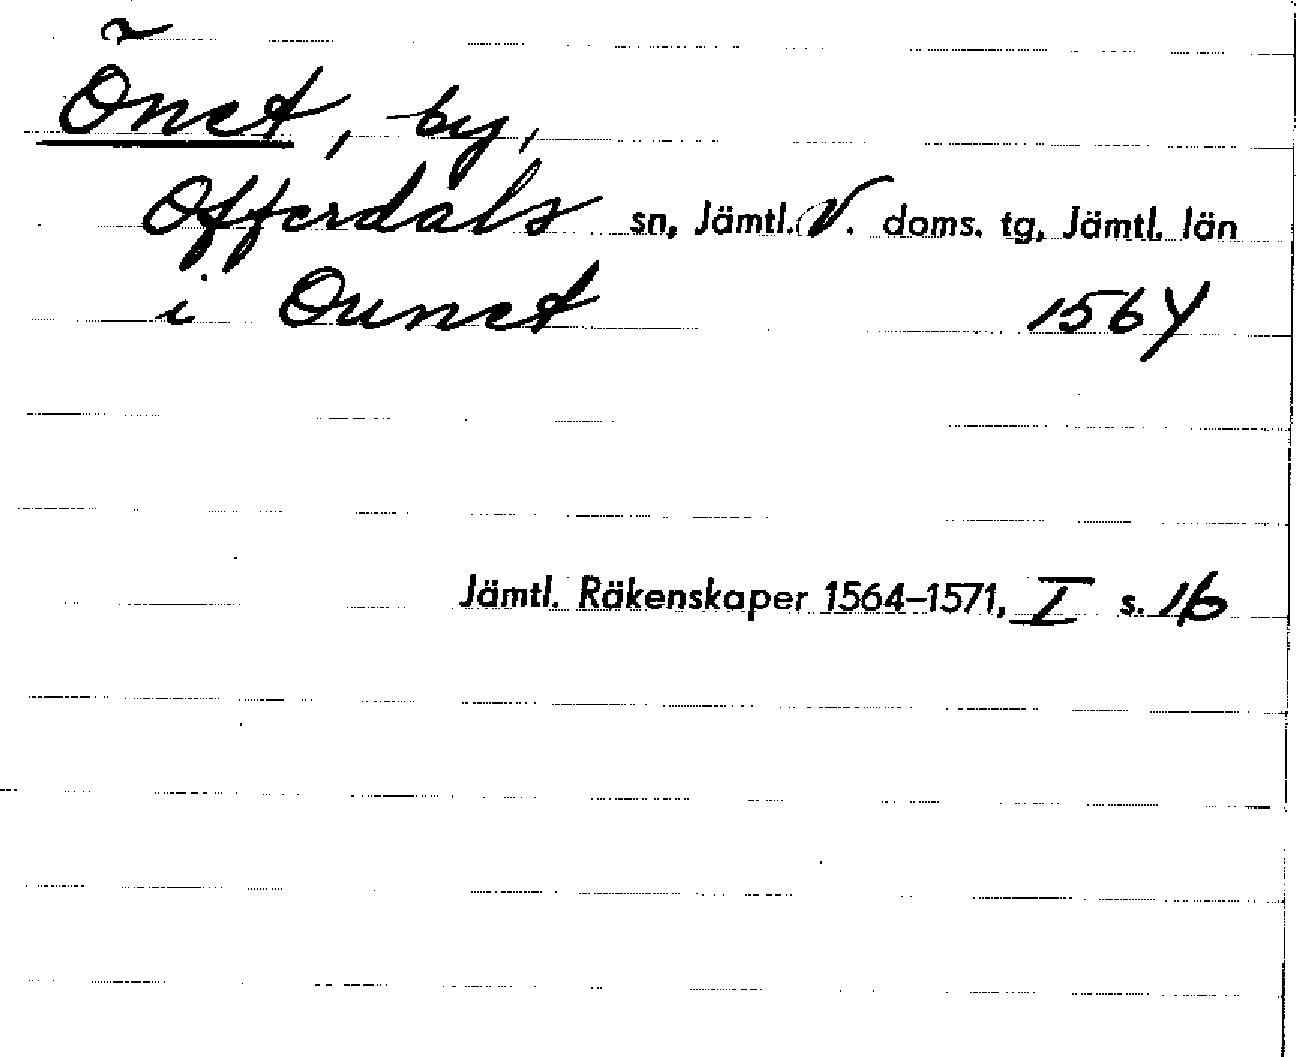 Önet, by,
Offerdals sn, Jämtl. V. doms. tg, Jämtl. län
i Ounet 1564
Jämtl. Räkenskaper 1564–1571, I s. 16